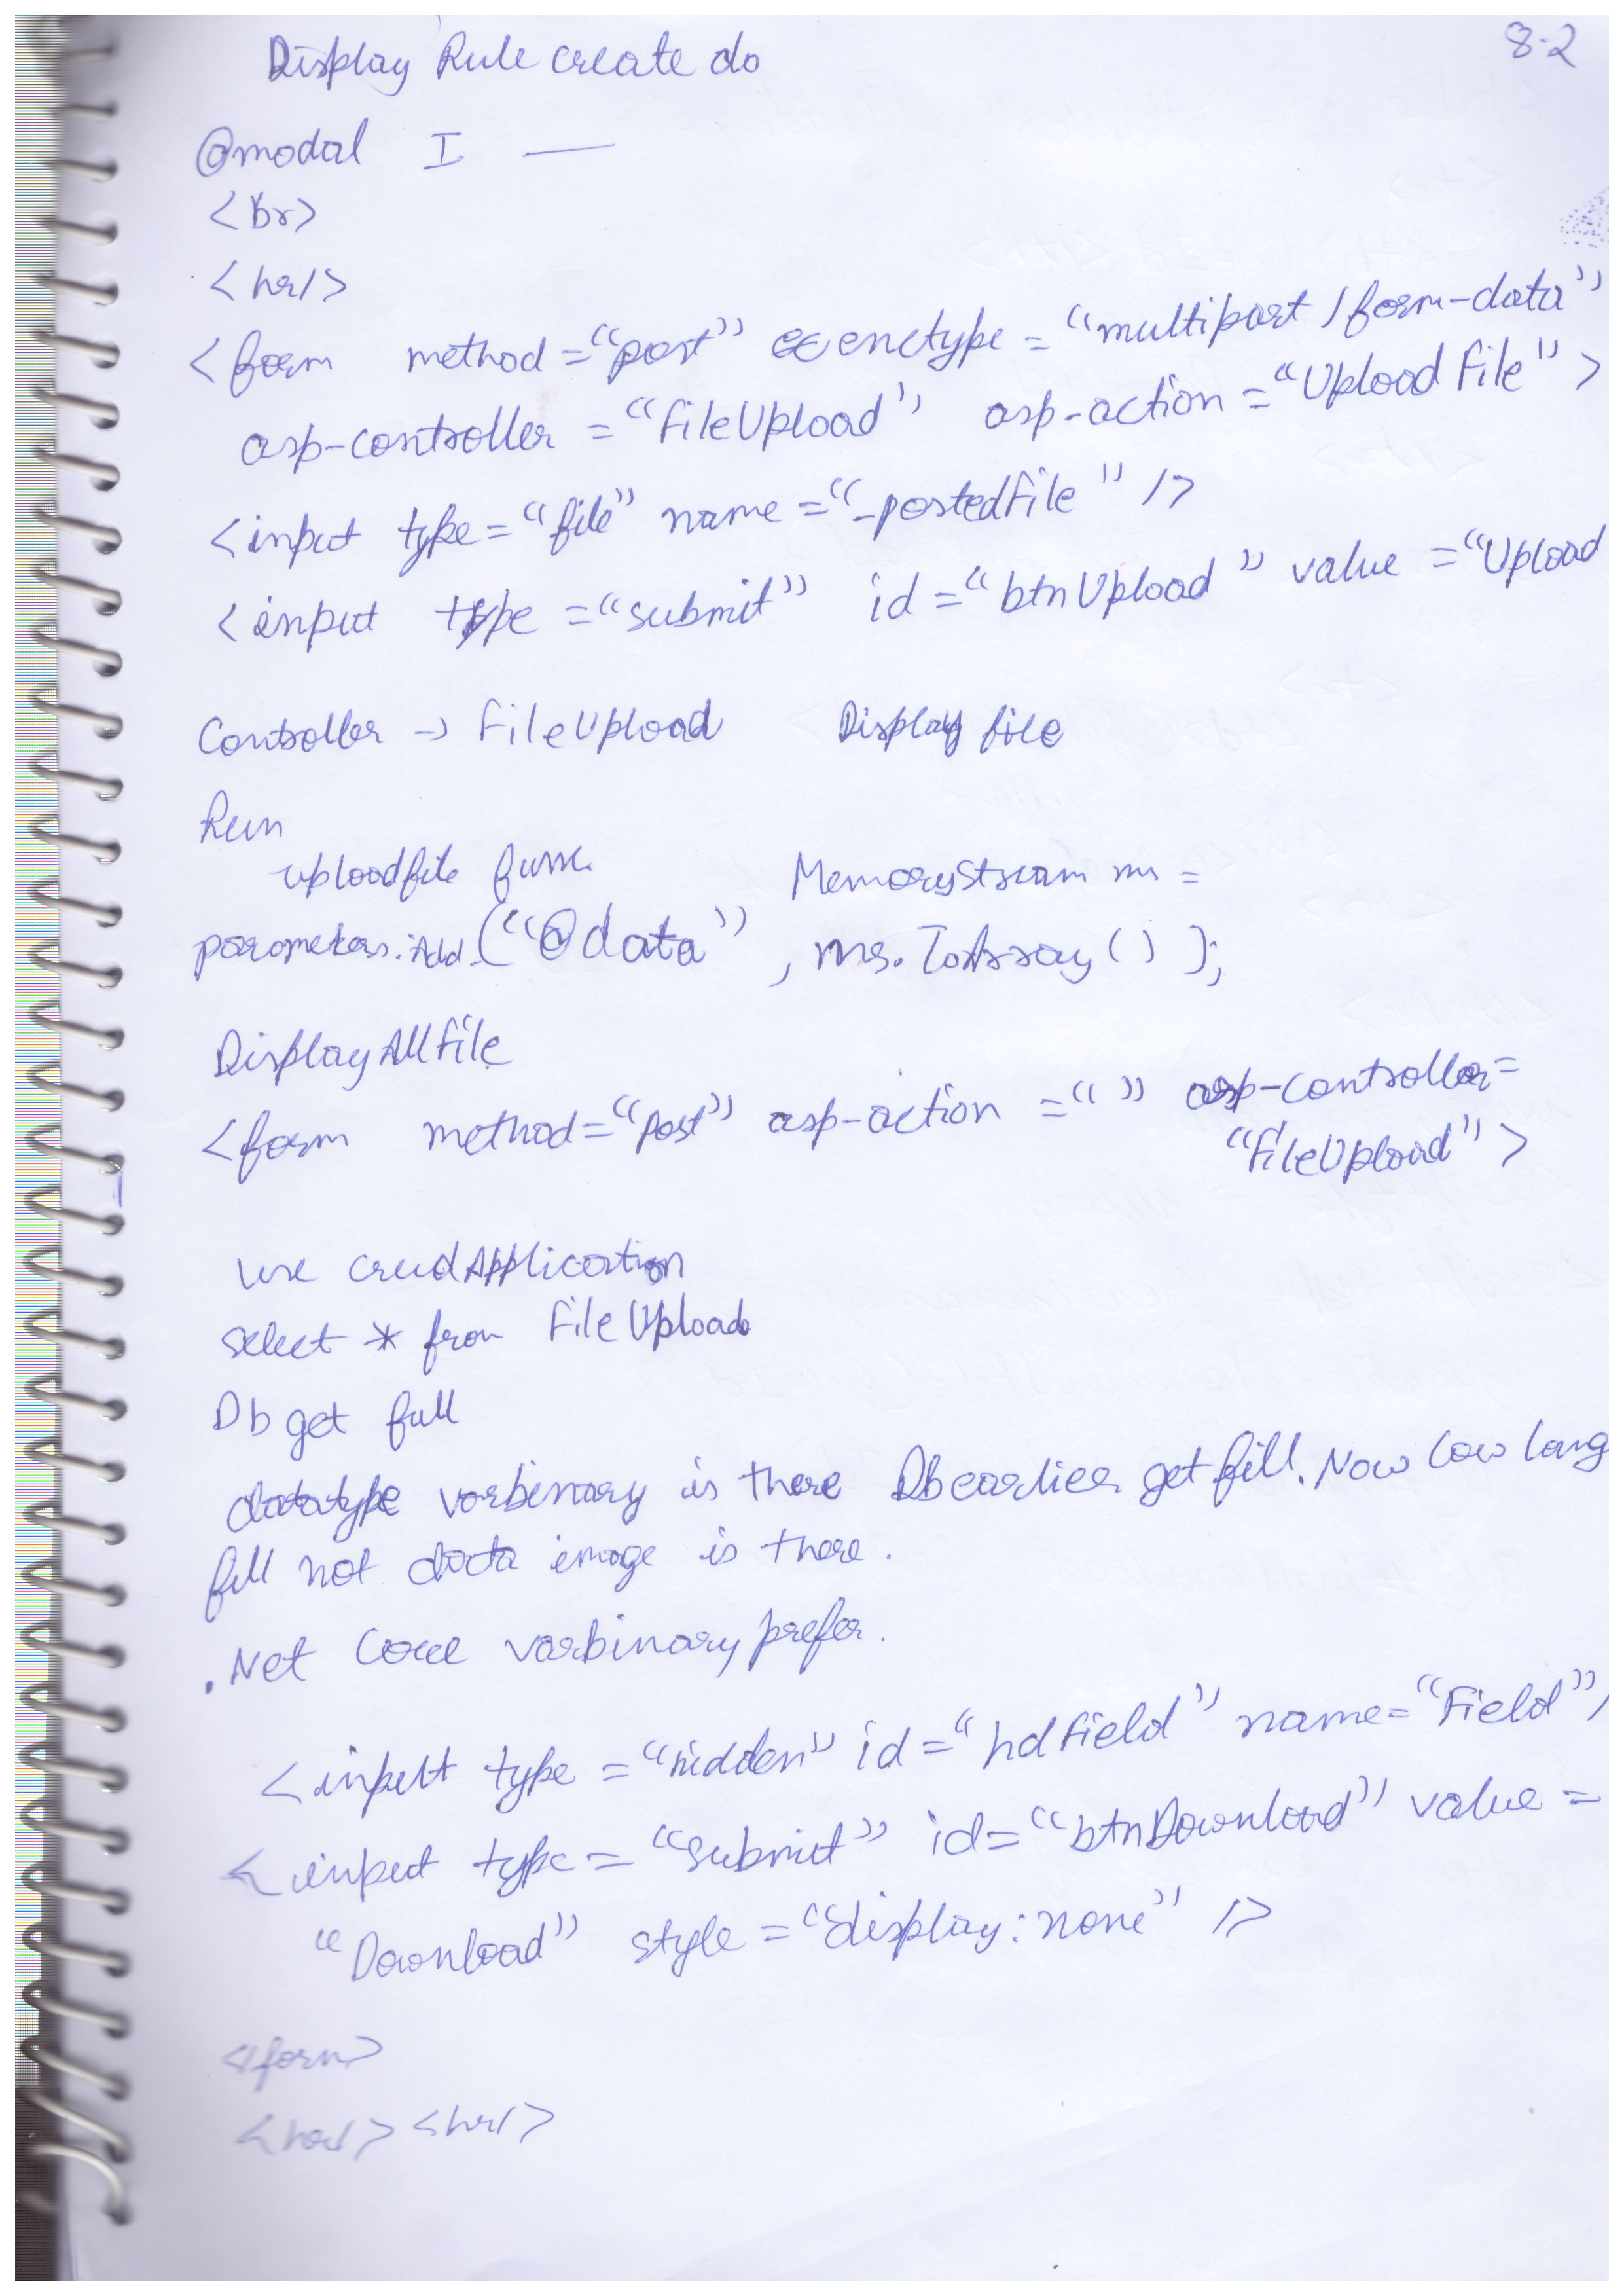 8.2
Display Rule create do
@modal I —
<br>
<hr/>
<form method="post" enctype="multipart/form-data"
asp-controller="FileUpload" asp-action="Upload File">
<input type="file" name="_postedFile" />
<input type="submit" id="btnUpload" value="Upload
Controller → FileUpload Display file
Run
uploadfile func. MemoryStream ms =
parameters.Add("@data", ms.ToArray() );
DisplayAllFile
<form method="Post" asp-action=" " asp-controller=
"FileUpload">
use crudApplication
select * from FileUpload
Db get full
datatype varbinary is there Db earlier get fill. Now low lang
fill not data image is there.
.Net Core varbinary prefer.
<input type="hidden" id="hdField" name="Field"/
<input type="submit" id="btnDownload" value=
"Download" style="display:none" />
</form>
<hr/>